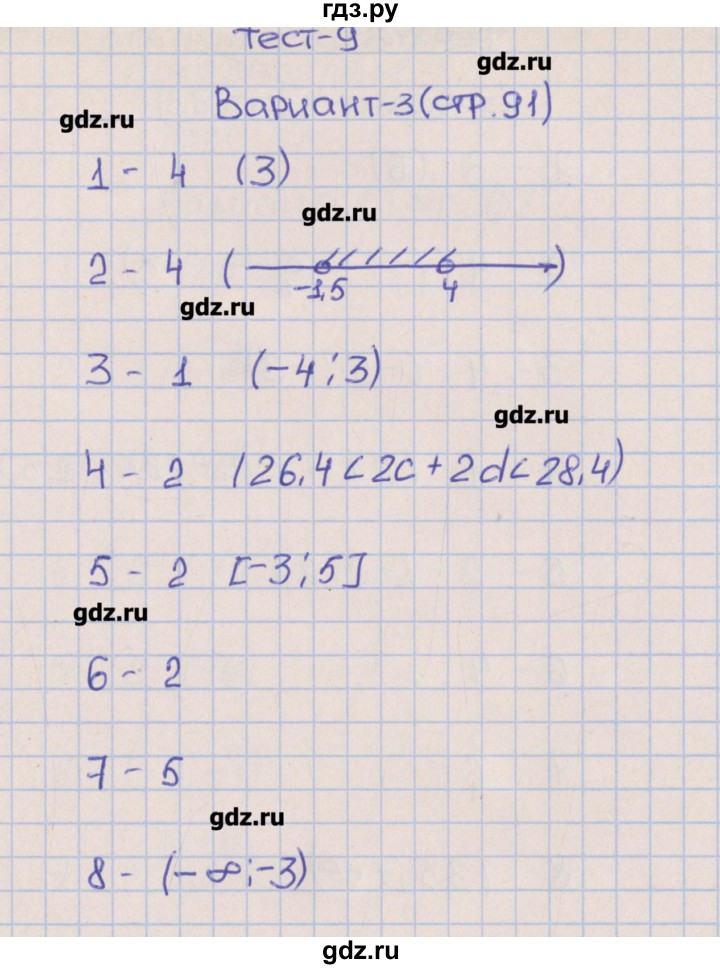 гдз.ру
Тест-9
gdz.ru
Вариант-3 (стр. 91)
gdz.ru
1 - 4 (3)
gdz.ru
2 - 4 ( )
-1,5 4
gdz.ru
3 - 1 (-4; 3)
gdz.ru
4 - 2 (26,4 < 2c + 2d < 28,4)
5 - 2 [-3; 5]
gdz.ru
6 - 2
7 - 5
gdz.ru
8 - (-∞; -3)
gdz.ru